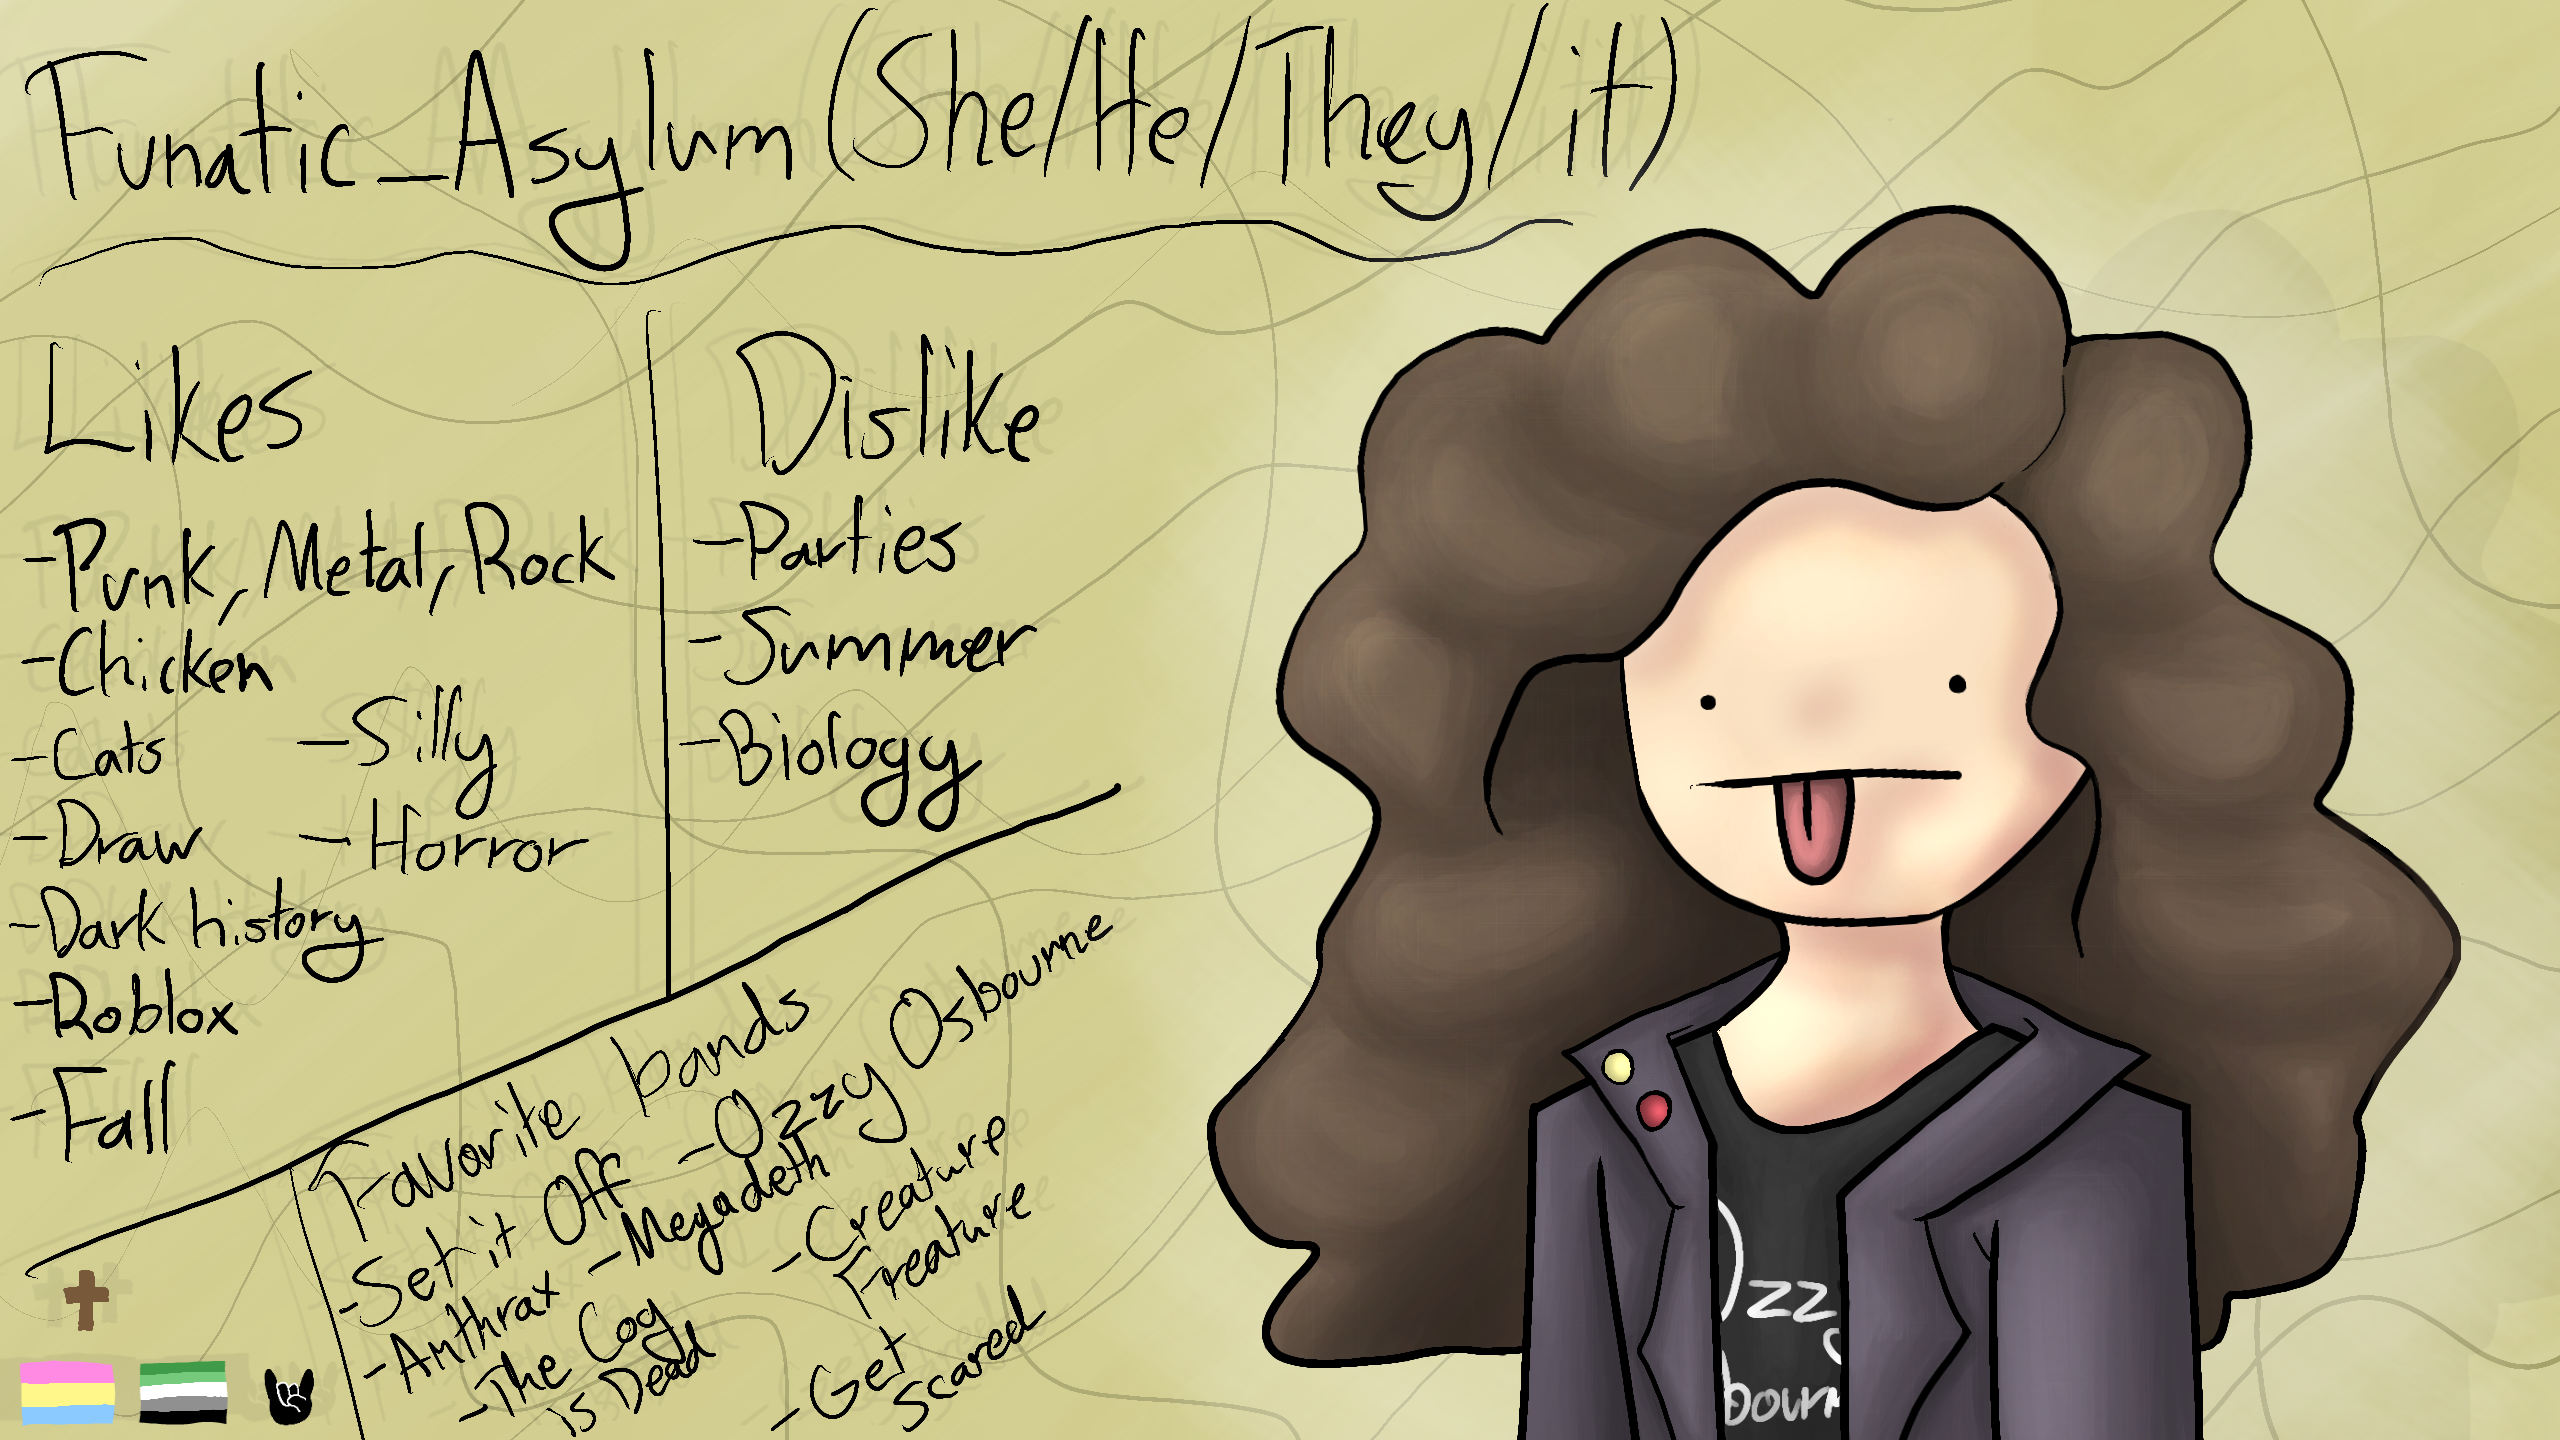 Funatic_Asylum (She/He/They/it)
Likes
-Punk, Metal, Rock
-Chicken
-Cats
-Silly
-Draw
-Horror
-Dark history
-Roblox
-Fall
Dislike
-Parties
-Summer
-Biology
Favorite bands
-Set it Off
-Ozzy Osbourne
-Anthrax
-Megadeth
-Creature
Freature
-The Cog
is Dead
-Get
Scared
Ozzy
bourn